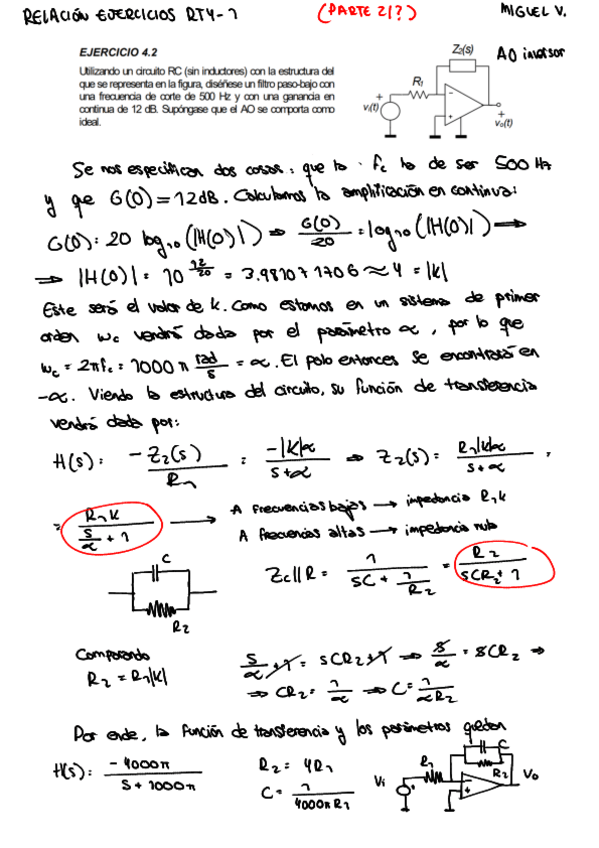 RELACIÓN EJERCICIOS RT4-1 (PARTE 2/?) MIGUEL V.
EJERCICIO 4.2
Utilizando un circuito RC (sin inductores) con la estructura del
que se representa en la figura, diséñese un filtro paso-bajo con
una frecuencia de corte de 500 Hz y con una ganancia en
continua de 12 dB. Supóngase que el AO se comporta como
ideal.
Z₂(s) AO inversor
R₁
+ - +
vᵢ(t)
+
vₒ(t)
Se nos especifican dos cosas: que la fc ha de ser 500 Hz
y que G(0) = 12dB. Calculamos la amplificación en continua:
G(0) = 20 log₁₀(|H(0)|) ⇒ G(0)/20 = log₁₀(|H(0)|) ⟶
⇒ |H(0)| = 10^(12/20) = 3.981071706 ≈ 4 = |k|
Este será el valor de k. Como estamos en un sistema de primer
orden ωc vendrá dada por el parámetro α, por lo que
ωc = 2πfc = 1000π rad/s = α. El polo entonces se encontrará en
-α. Viendo la estructura del circuito, su función de transferencia
vendrá dada por:
H(s) = -Z₂(s)/R₁ = -|k|α/(s+α) ⇒ Z₂(s) = R₁|k|α/(s+α) =
= R₁k/(s/α + 1) ⟶ A frecuencias bajas ⟶ impedancia R₁k
A frecuencias altas ⟶ impedancia nula
C
R₂
Zc||R = 1/(sC + 1/R₂) = R₂/(sCR₂ + 1)
Comparando
R₂ = R₁|k|
s/α + 1 = sCR₂ + 1 ⇒ s/α = sCR₂ ⇒
⇒ CR₂ = 1/α ⇒ C = 1/(αR₂)
Por ende, la función de transferencia y los parámetros quedan
H(s) = -4000π/(s + 1000π)
R₂ = 4R₁
C = 1/(4000πR₁)
Vi R₁ C R₂ Vo
- +